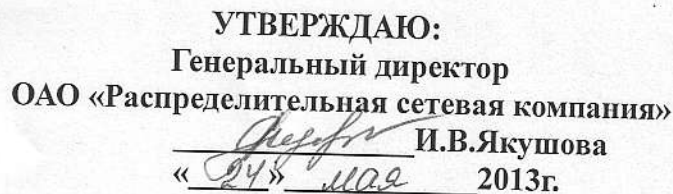 УТВЕРЖДАЮ:
Генеральный директор
ОАО «Распределительная сетевая компания»
И.В.Якушова
«24» мая 2013г.